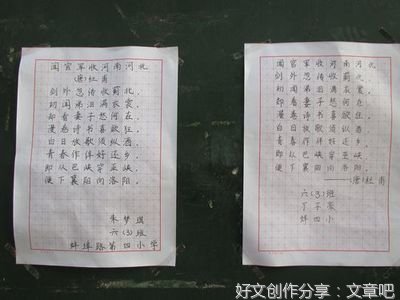 闻官军收河南河北
(唐)杜甫
剑外忽传收蓟北,
初闻涕泪满衣裳。
却看妻子愁何在,
漫卷诗书喜欲狂。
白日放歌须纵酒,
青春作伴好还乡。
即从巴峡穿巫峡,
便下襄阳向洛阳。
六(3)班
蚌埠路第四小学
闻官军收河南河北
剑外忽传收蓟北,
初闻涕泪满衣裳。
却看妻子愁何在,
漫卷诗书喜欲狂。
白日放歌须纵酒,
青春作伴好还乡。
即从巴峡穿巫峡,
便下襄阳向洛阳。
——(唐)杜甫
六(3)班
蚌四小
好文创作分享:文章吧